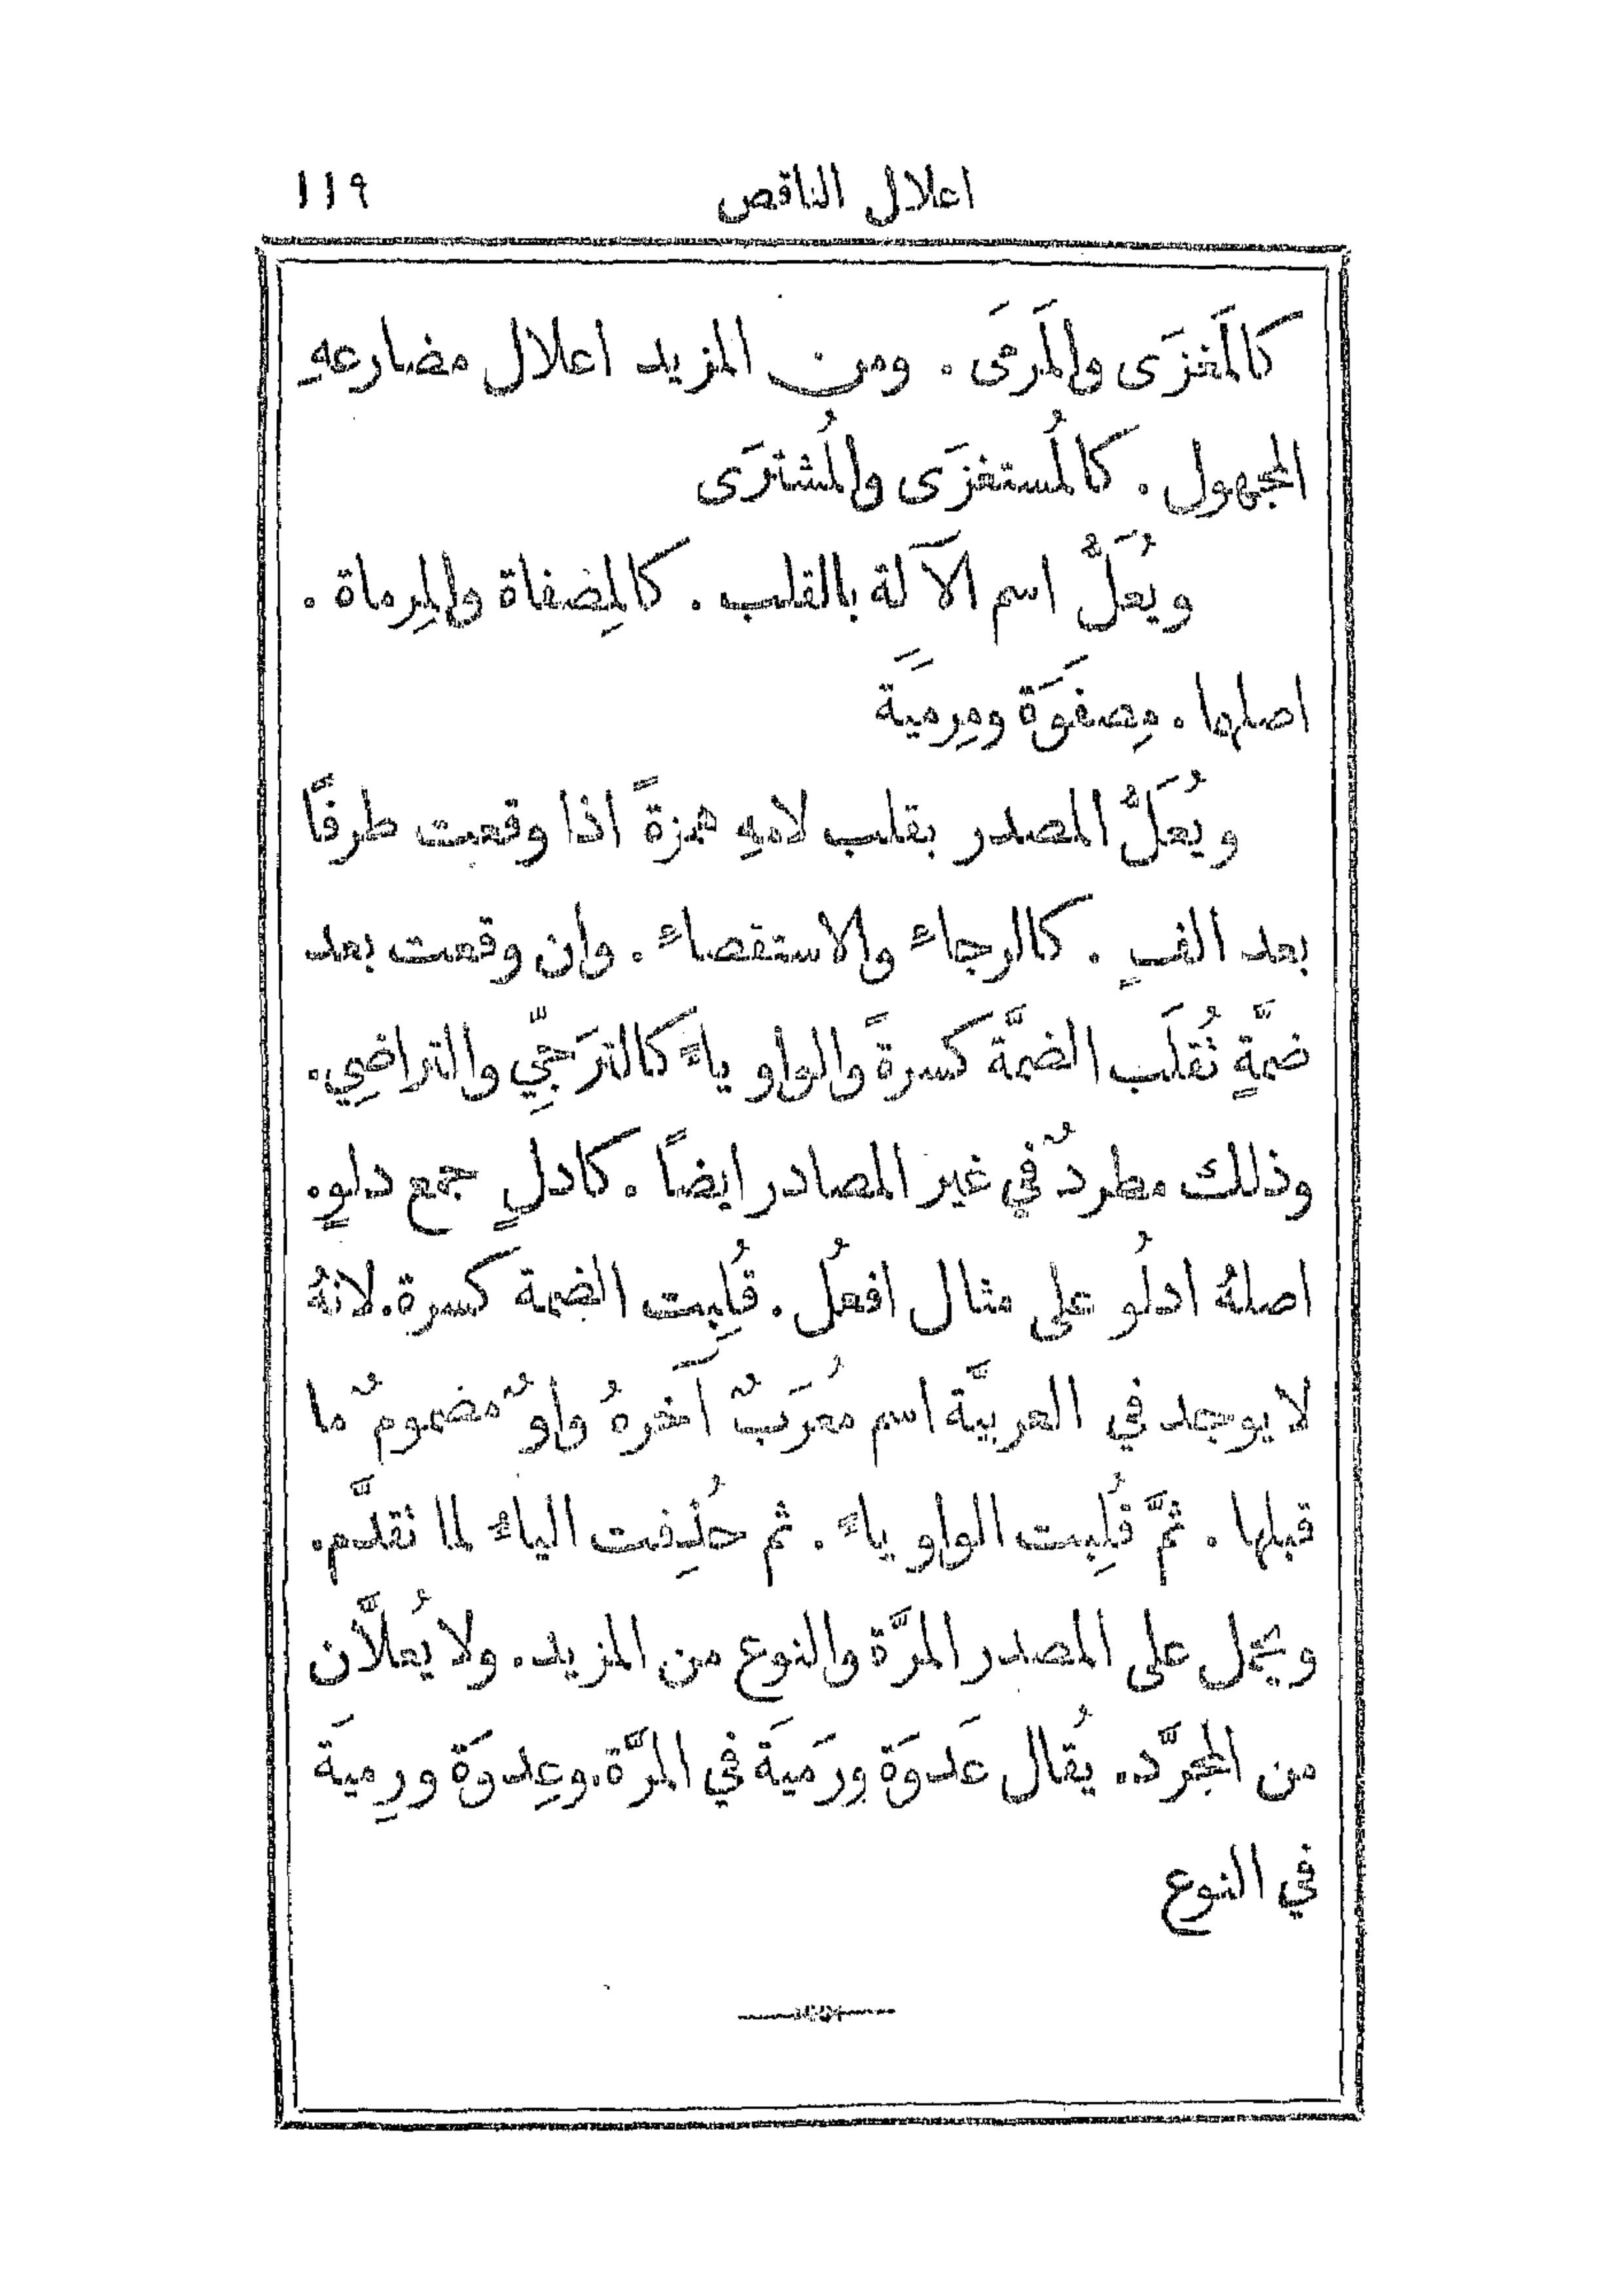 اعلال الناقص ١١٩
كالمَغزَى والمَرمَى . ومن المزيد اعلال مضارعهِ
المجهول . كالمُستغزَى والمُشترَى
ويُعَلُّ اسم الآلة بالقلب . كالمِصفاة والمِرماة .
اصلها . مِصفَوَة ومِرمَيَة
ويُعَلُّ المصدر بقلب لامهِ همزةً اذا وقعت طرفًا
بعد الفٍ . كالرجاء والاستقصاء . وان وقعت بعد
ضمَّةٍ تُقلَب الضمَّة كسرةً والواو ياءً كالترَجِّي والتراضِي .
وذلك مطردٌ في غير المصادر ايضًا . كادلٍ جمع دلوٍ .
اصلهُ ادلُو على مثال افعُل . قُلِبت الضمة كسرة . لانهُ
لا يوجد في العربيَّة اسم مُعرَبٌ آخرهُ واوٌ مضمومٌ ما
قبلها . ثمَّ قُلِبت الواو ياءً . ثم حُذِفت الياء لما تقدَّم .
ويحمل على المصدر المرَّة والنوع من المزيد . ولا يُعلاَّن
من المجرَّد . يُقال عَدوَة ورَميَة في المرَّة . وعِدوَة ورِميَة
في النوع